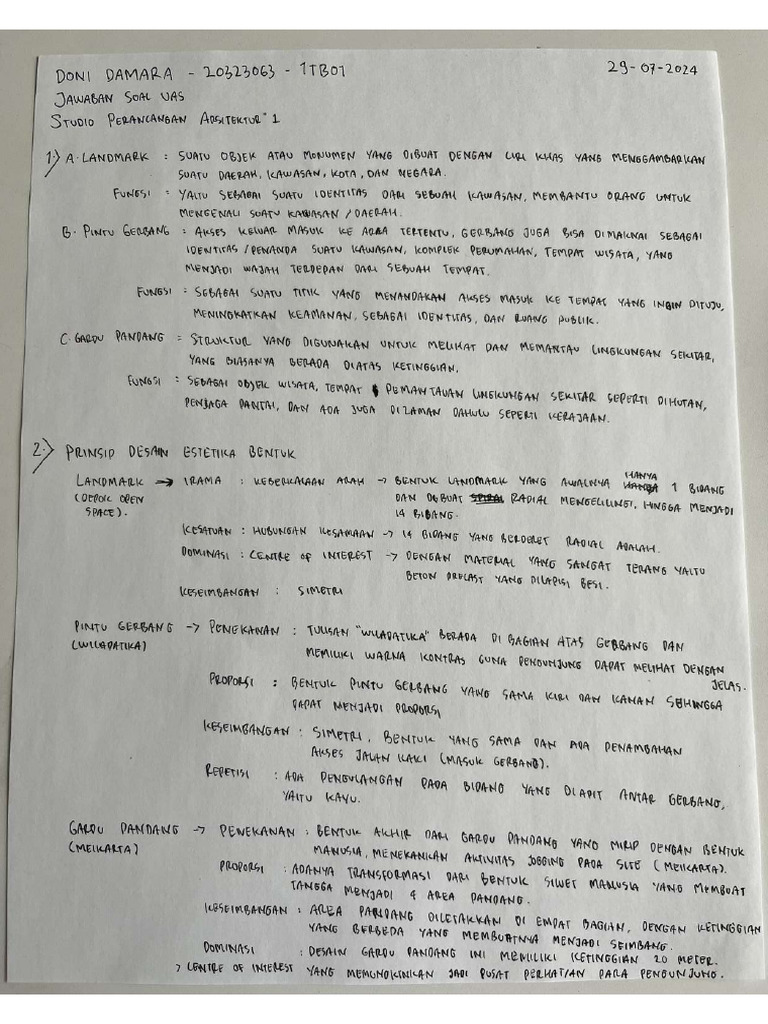 DONI DAMARA - 20323063 - 1TB01
29-07-2024
JAWABAN SOAL UAS
STUDIO PERANCANGAN ARSITEKTUR 1
1.) A. LANDMARK : SUATU OBJEK ATAU MONUMEN YANG DIBUAT DENGAN CIRI KHAS YANG MENGGAMBARKAN
SUATU DAERAH, KAWASAN, KOTA, DAN NEGARA.
FUNGSI : YAITU SEBAGAI SUATU IDENTITAS DARI SEBUAH KAWASAN, MEMBANTU ORANG UNTUK
MENGENALI SUATU KAWASAN / DAERAH.
B. PINTU GERBANG : AKSES KELUAR MASUK KE AREA TERTENTU, GERBANG JUGA BISA DIMAKNAI SEBAGAI
IDENTITAS / PENANDA SUATU KAWASAN, KOMPLEK PERUMAHAN, TEMPAT WISATA, YANG
MENJADI WAJAH TERDEPAN DARI SEBUAH TEMPAT.
FUNGSI : SEBAGAI SUATU TITIK YANG MENANDAKAN AKSES MASUK KE TEMPAT YANG INGIN DITUJU,
MENINGKATKAN KEAMANAN, SEBAGAI IDENTITAS, DAN RUANG PUBLIK.
C. GARDU PANDANG : STRUKTUR YANG DIGUNAKAN UNTUK MELIHAT DAN MEMANTAU LINGKUNGAN SEKITAR,
YANG BIASANYA BERADA DIATAS KETINGGIAN.
FUNGSI : SEBAGAI OBJEK WISATA, TEMPAT PEMANTAUAN LINGKUNGAN SEKITAR SEPERTI DIHUTAN,
PENJAGA PANTAI, DAN ADA JUGA DIZAMAN DAHULU SEPERTI KERAJAAN.
2.) PRINSIP DESAIN ESTETIKA BENTUK
LANDMARK → IRAMA : KEBERKALAAN ARAH → BENTUK LANDMARK YANG AWALNYA HANYA 1 BIDANG
(DEPOK OPEN SPACE). DAN DIBUAT RADIAL MENGELILINGI, HINGGA MENJADI
14 BIBANG.
KESATUAN : HUBUNGAN KESAMAAN → 14 BIDANG YANG BERDERET RADIAL ADALAH.
DOMINASI : CENTRE OF INTEREST → DENGAN MATERIAL YANG SANGAT TERANG YAITU
BETON PRECAST YANG DILAPISI BESI.
KESEIMBANGAN : SIMETRI
PINTU GERBANG → PENEKANAN : TULISAN "WILADATIKA" BERADA DI BAGIAN ATAS GERBANG DAN
(WILADATIKA) MEMILIKI WARNA KONTRAS GUNA PENGUNJUNG DAPAT MELIHAT DENGAN
JELAS.
PROPORSI : BENTUK PINTU GERBANG YANG SAMA KIRI DAN KANAN SEHINGGA
DAPAT MENJADI PROPORSI
KESEIMBANGAN : SIMETRI, BENTUK YANG SAMA DAN ADA PENAMBAHAN
AKSES JALAN KAKI (MASUK GERBANG).
REPETISI : ADA PENGULANGAN PADA BIDANG YANG DIAPIT ANTAR GERBANG,
YAITU KAYU.
GARDU PANDANG → PENEKANAN : BENTUK AKHIR DARI GARDU PANDANG YANG MIRIP DENGAN BENTUK
(MEIKARTA) MANUSIA, MENEKANKAN AKTIVITAS JOGGING PADA SITE (MEIKARTA).
PROPORSI : ADANYA TRANSFORMASI DARI BENTUK SILUET MANUSIA YANG MEMBUAT
TANGGA MENJADI 4 AREA PANDANG.
KESEIMBANGAN : AREA PANDANG DILETAKKAN DI EMPAT BAGIAN, DENGAN KETINGGIAN
YANG BERBEDA YANG MEMBUATNYA MENJADI SEIMBANG.
DOMINASI : DESAIN GARDU PANDANG INI MEMILIKI KETINGGIAN 20 METER.
> CENTRE OF INTEREST YANG MEMUNGKINKAN JADI PUSAT PERHATIAN PARA PENGUNJUNG.